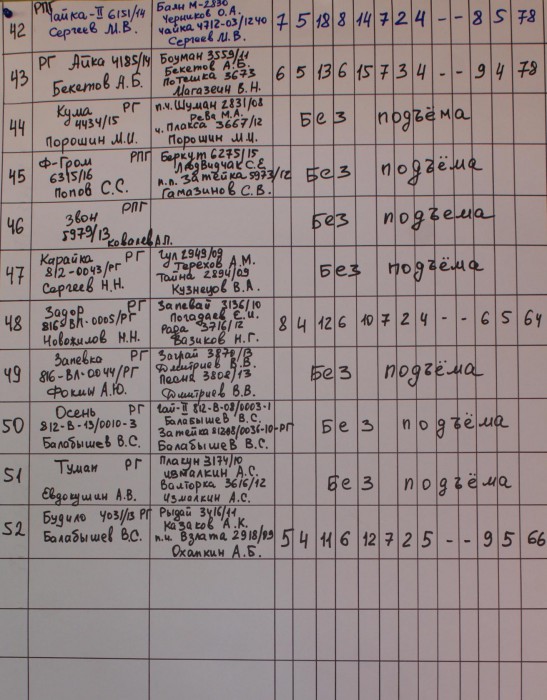 42 РПГ Чайка-II 6151/14 Сергеев М.В. Балы М-2830 Черников О.А. Чайка 4712-03/1240 Сергеев М.В. 7 5 18 8 14 7 2 4 - - 8 5 78
43 РГ Айка 4185/14 Бекетов А.Б. Боуман 3559/11 Бекетов А.Б. Потешка 3673 Магазеин В.Н. 6 5 13 6 15 7 3 4 - - 9 4 78
44 Кума РГ 4434/15 Порошин М.И. п.ч. Шуман 2831/08 Рева М.А. ч. Плакса 3667/12 Порошин М.И. Без подъёма
45 Ф-Гром РПГ 6315/16 Попов С.С. Беркут 6275/15 С.Е. п.п. Затейка 5973/12 Гамазинов С.В. Без подъёма
46 Звон РПГ 5979/13 Ковалев А.П. Без подъема
47 Карайка РГ 8/2-0043/РГ Сергеев Н.Н. Гул 2949/09 Терехов А.М. Тайна 2894/09 Кузнецов В.А. Без подъёма
48 Задор РГ 816 ВЛ-0005/РГ Новожилов Н.Н. Запевай 3136/10 Погадаев Е.И. Рада 3716/12 Вазиков Н.Г. 8 4 12 6 10 7 2 4 - - 6 5 64
49 Запевка РГ 816-ВЛ-0044/РГ Фокин А.Ю. 3870/13 Дмитриев В.В. Песня 3808/13 Дмитриев В.В. Без подъёма
50 Осень РГ 812-В-13/0010-3 Балабышев В.С. Чай-II 812-В-08/0003-1 Балабышев В.С. Затейка 812В8/0036-10-РГ Балабышев В.С. Без подъёма
51 Туман РГ Евдокушин А.В. Плакун 3174/10 Измалкин А.С. Валторка 3616/12 Измалкин А.С. Без подъёма
52 Будило 4031/13 РГ Балабышев В.С. Рыдай 3416/11 Казаков А.К. п.и. Взлата 2918/09 Охапкин А.Б. 5 4 11 6 12 7 2 5 - - 9 5 66